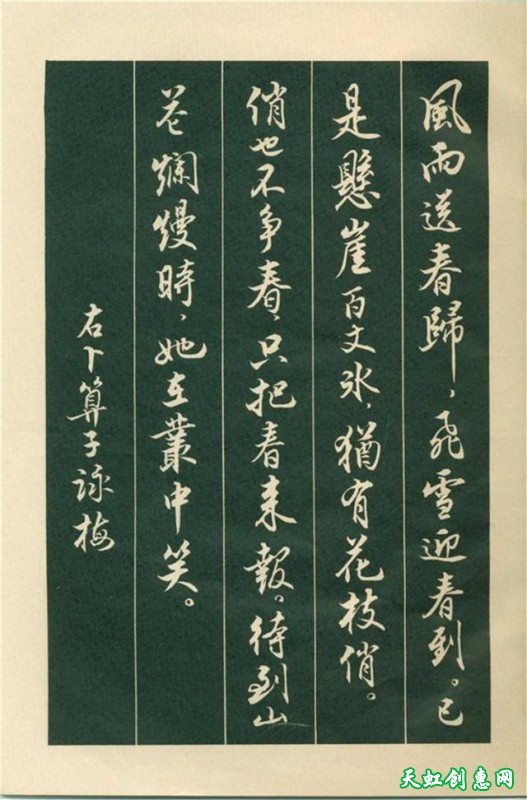 風雨送春歸，飛雪迎春到。已
是懸崖百丈冰，猶有花枝俏。
俏也不争春，只把春来報。待到山
花爛熳時，她在叢中笑。
右卜算子詠梅
天虹创惠网